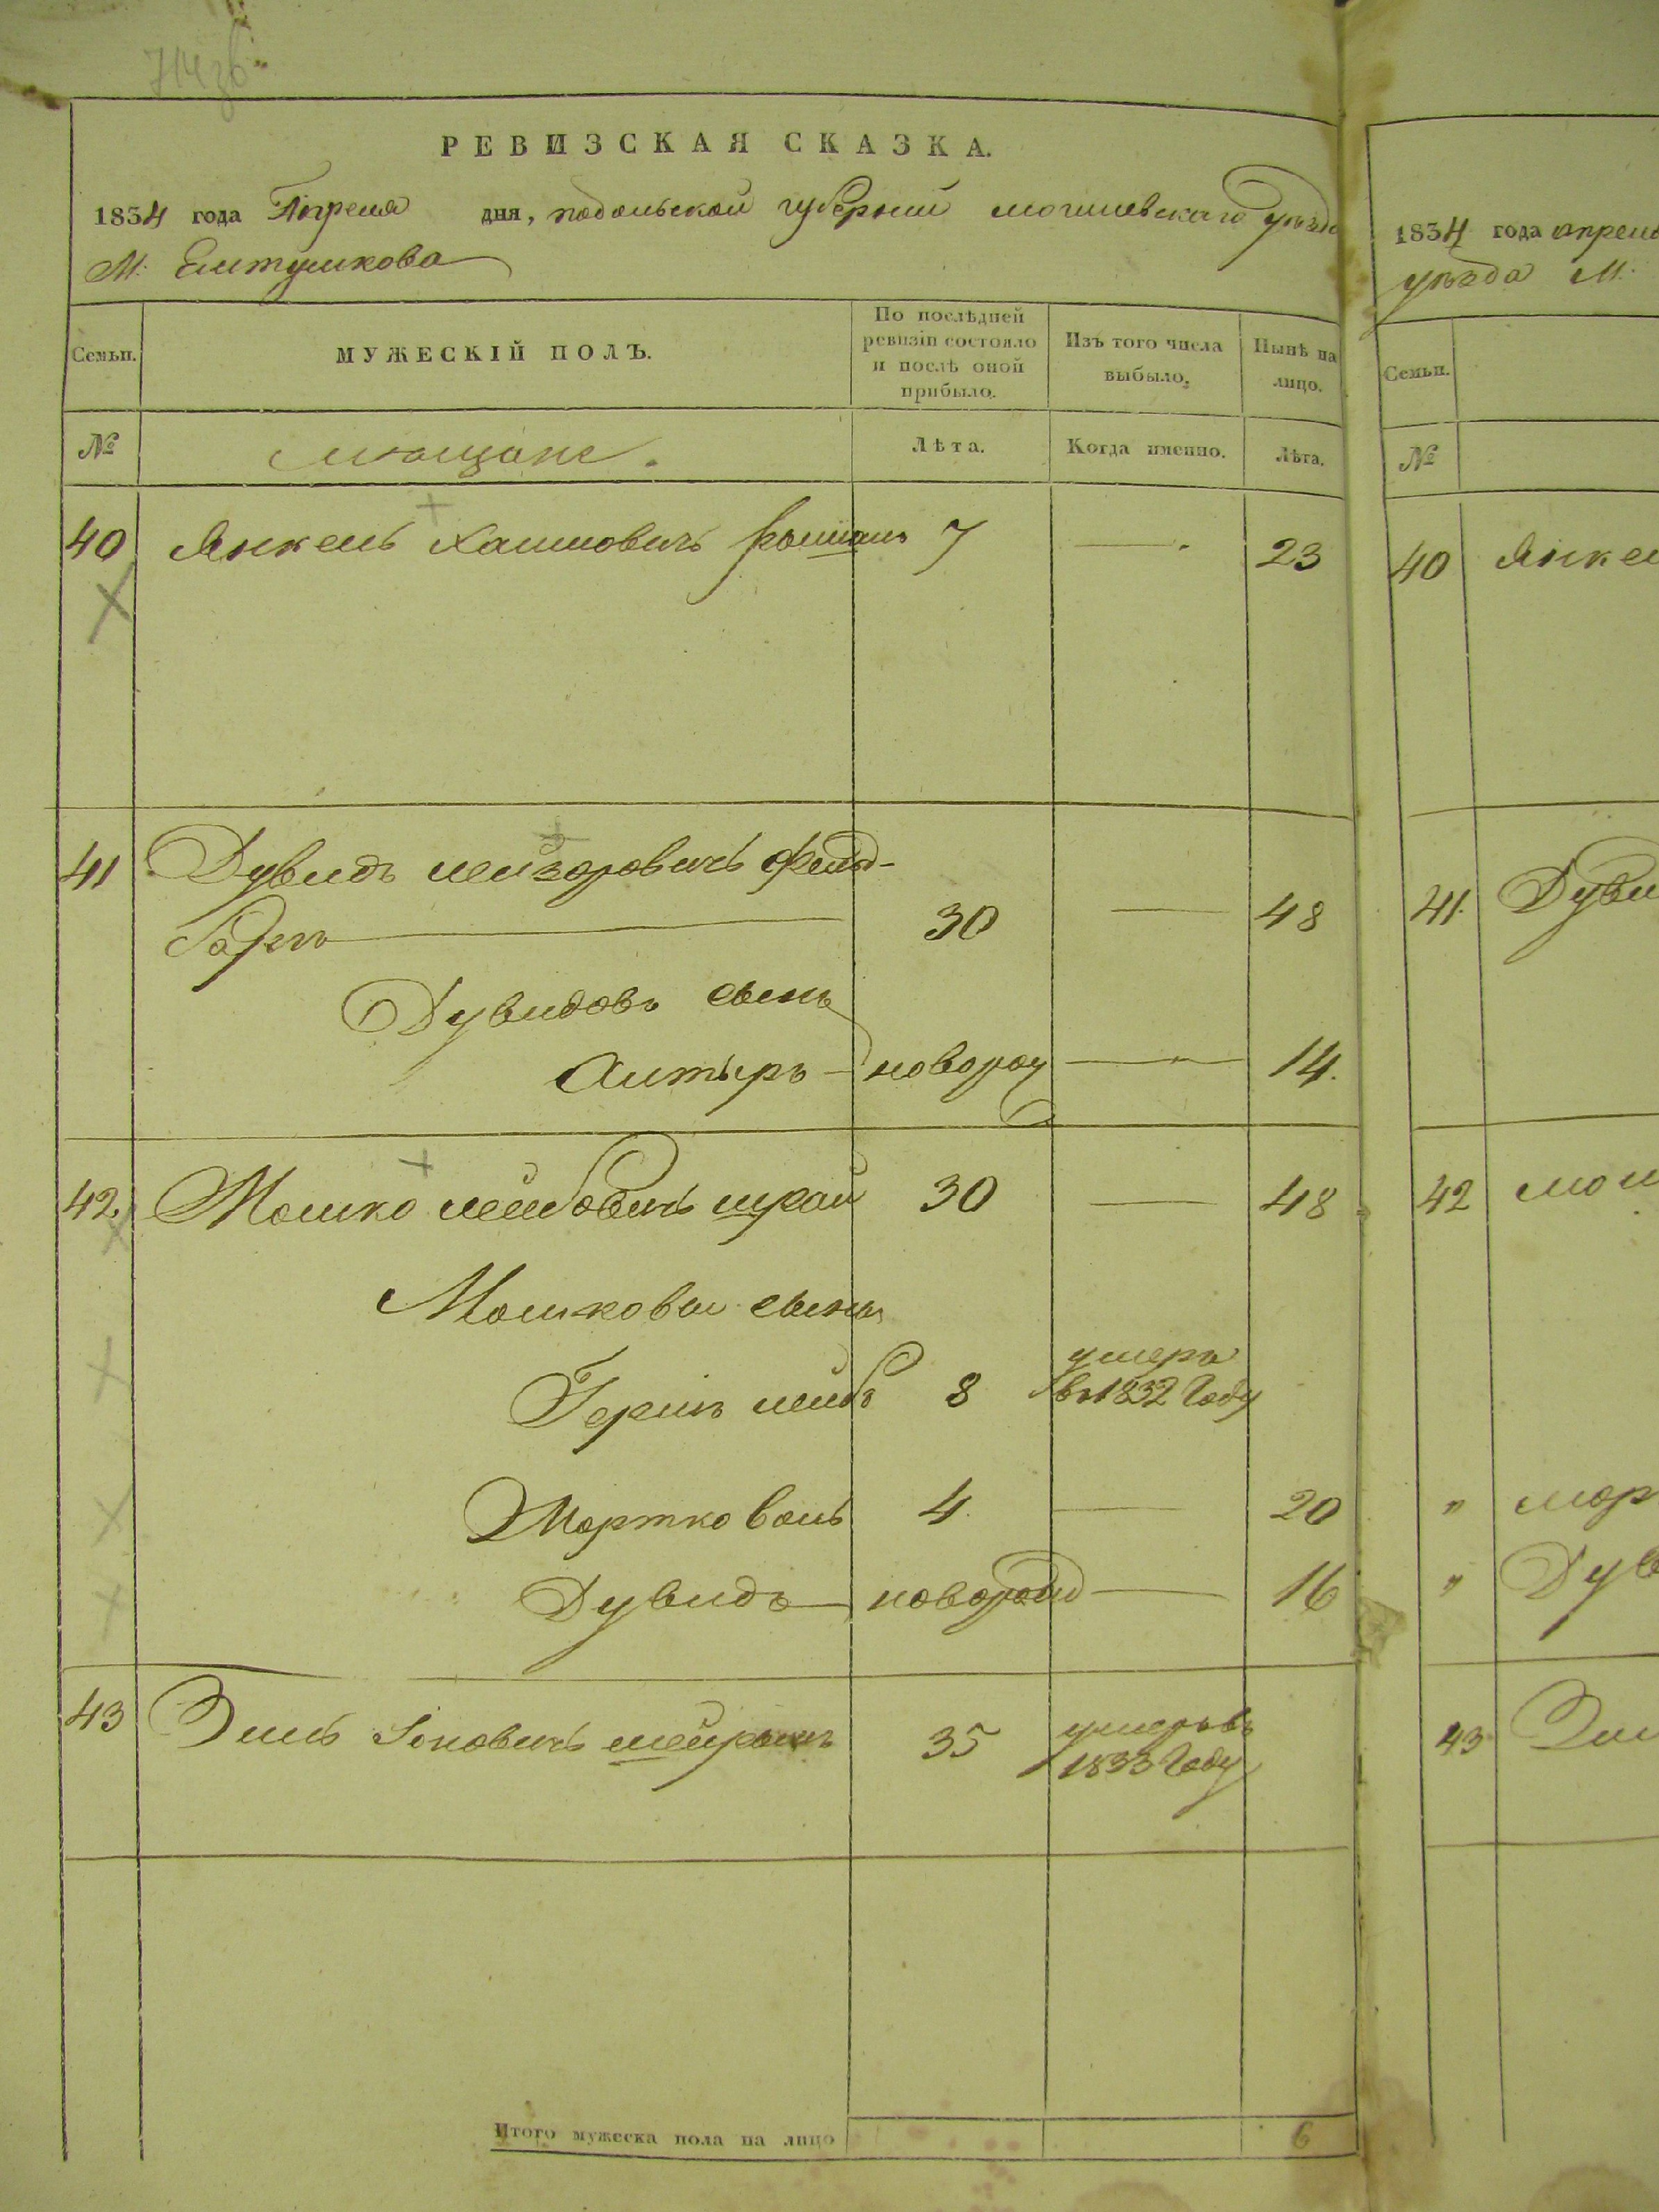 РЕВИЗСКАЯ СКАЗКА.
1834 года Апреля дня, подольской губернии могилевскаго уѣзда
М. Елтушкова
Семьи.
МУЖЕСКІЙ ПОЛЪ.
По послѣдней
ревизіи состояло
и послѣ оной
прибыло.
Изъ того числа
выбыло.
Нынѣ на
лицо.
№
мѣщане.
Лѣта.
Когда именно.
Лѣта.
40 Янкель Хаимовичъ 7 — 23
41 Дувидъ лейзоровичъ фельд-
30 — 48
Дувидовъ сынъ
Алтыръ — новорож — 14.
42. Мошко лейбовичъ шрай 30 — 48
Мошковы сыны
Гершъ лейбъ 8 умеръ
в 1832 Году
Мортко волъ 4. — 20
Дувидъ — новорожд — 16
43 Эль Іоновичъ 35 умеръ въ
1833 Году
Итого мужеска пола на лицо 6
1834 года апреля
уѣзда М.
Семьи.
№
40 Янкел
41. Дуви
42 мош
" мор
" Дув
43